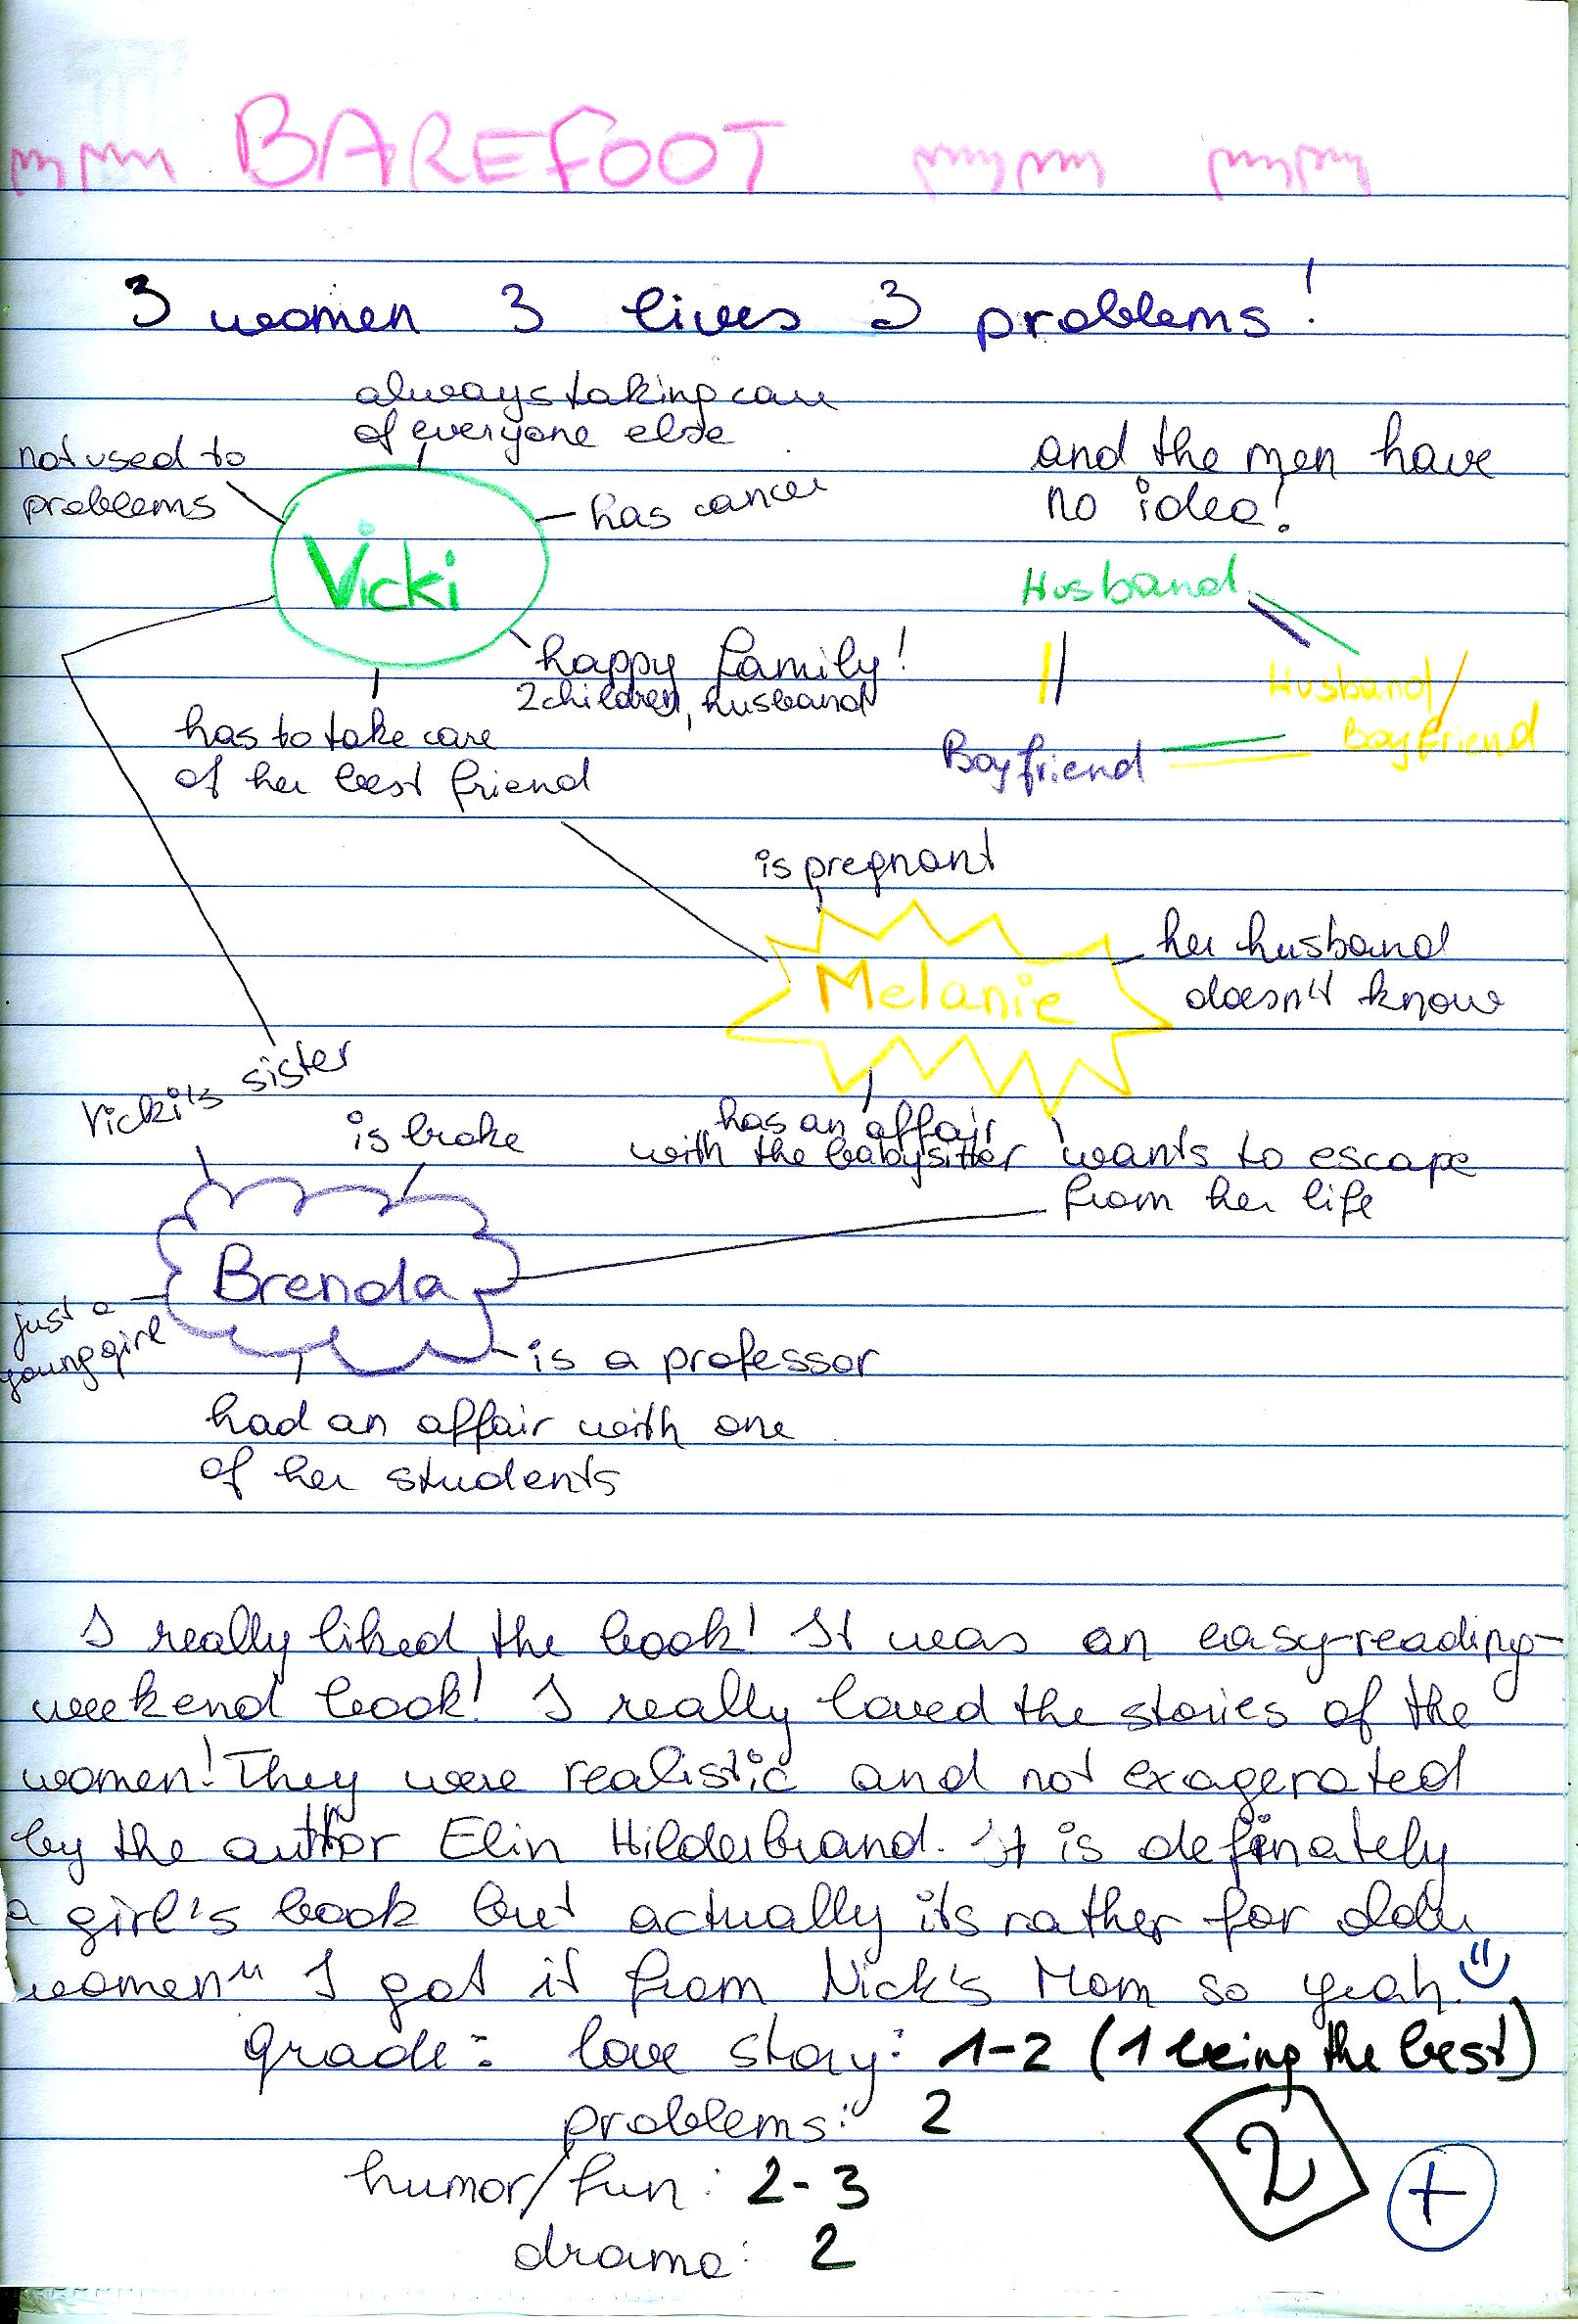 BAREFOOT
3 women 3 lives 3 problems!
always taking care
of everyone else
not used to
problems
has cancer
Vicki
and the men have
no idea!
Husband
Husband/
Boyfriend
Boyfriend
happy family!
2 children, husband
has to take care
of her best friend
is pregnant
Melanie
her husband
doesn't know
has an affair
with the babysitter
wants to escape
from her life
Vicki's sister
is broke
Brenda
just a
young girl
is a professor
had an affair with one
of her students
I really liked the book! It was an easy-reading-
weekend book! I really loved the stories of the
women! They were realistic and not exagerated
by the author Elin Hilderbrand. It is definately
a girl's book but actually its rather for
women" I got it from Nick's Mom so yeah.
grade: love story: 1-2 (1 being the best)
problems: 2
humor/fun: 2-3
drama: 2
2 +